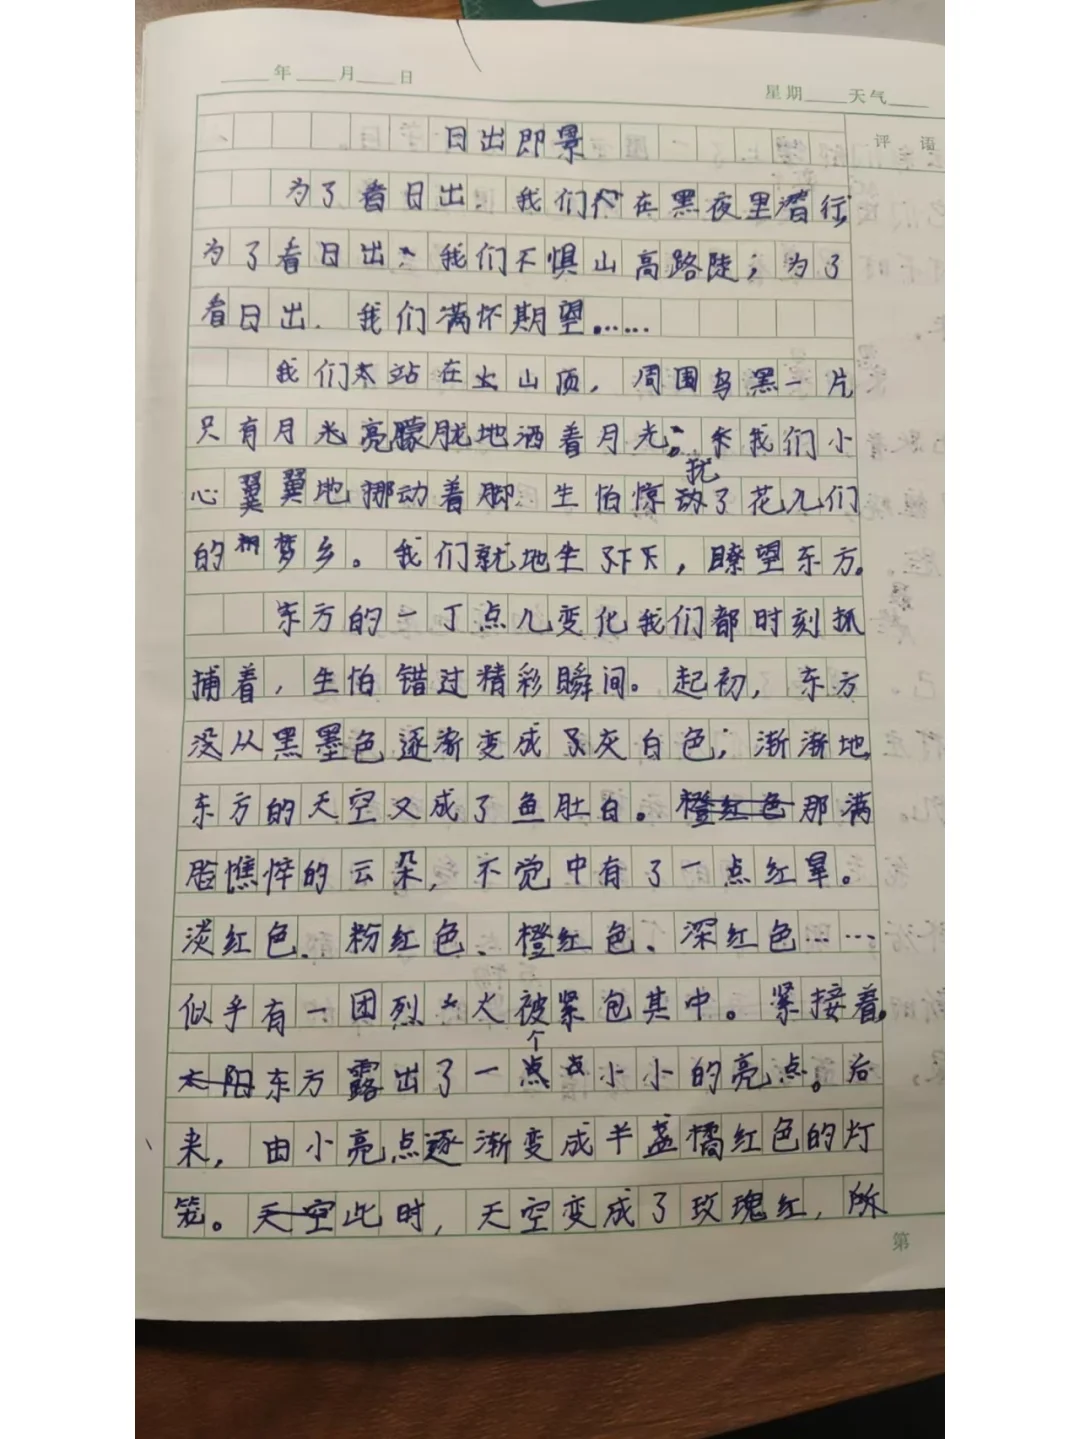 年 月 日
星期 天气
评语
日出即景
为了看日出，我们在黑夜里潜行
为了看日出、我们不惧山高路陡；为了
看日出，我们满怀期望……
我们站在山顶，周围乌黑一片
只有月亮朦胧地洒着月光。我们小
心翼翼地挪动着脚，生怕惊扰了花儿们
的梦乡。我们就地坐下，瞭望东方。
东方的一丁点儿变化我们都时刻抓
捕着，生怕错过精彩瞬间。起初，东方
从黑墨色逐渐变成了灰白色；渐渐地，
东方的天空又成了鱼肚白。橙红色那满
脸憔悴的云朵，不觉中有了一点红晕。
淡红色、粉红色、橙红色、深红色……
似乎有一团烈火被紧包其中。紧接着，
太阳东方露出了一个小小的亮点。后
来，由小亮点逐渐变成半盏橘红色的灯
笼。天空此时，天空变成了玫瑰红，所
第